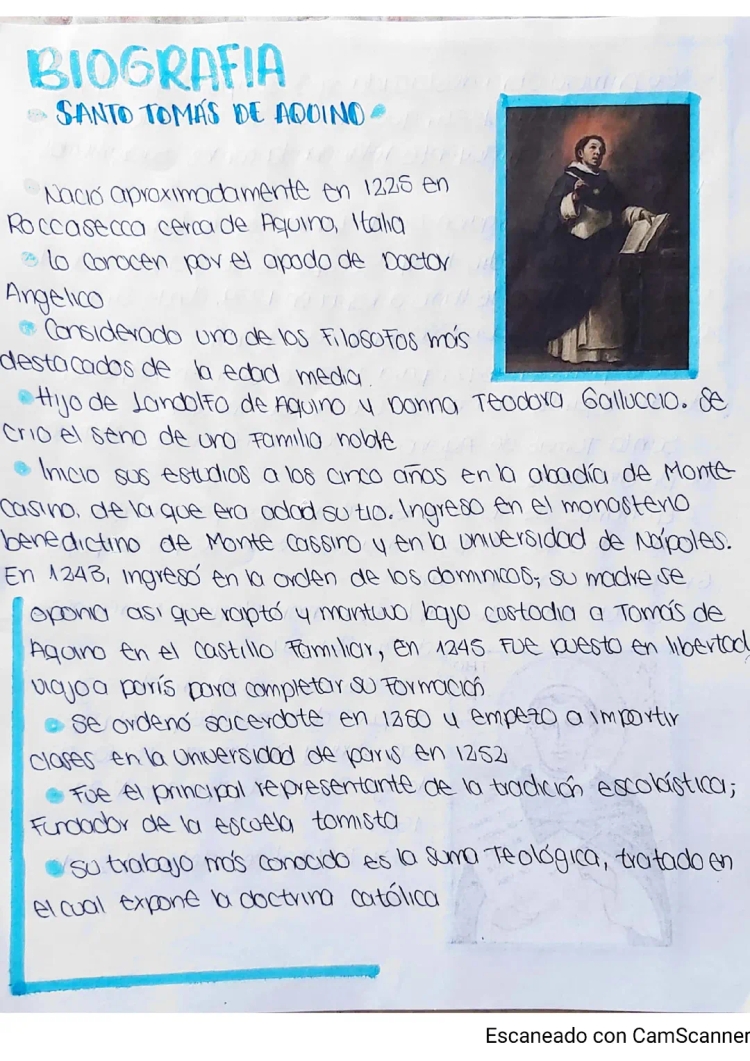 BIOGRAFIA
SANTO TOMÁS DE AQUINO
Nació aproximadamente en 1225 en
Roccasecca cerca de Aquino, Italia
lo conocen por el apodo de Doctor
Angelico
Considerado uno de los Filosofos más
destacados de la edad media.
Hijo de Landolfo de Aquino y Donna Teodora Galluccio. Se
crio el seno de una Familia noble
Inicio sus estudios a los cinco años en la abadía de Monte
casino, de la que era adad su tio. Ingreso en el monasterio
benedictino de Monte Cassino y en la universidad de Nápoles.
En 1243, ingresó en la orden de los dominicos; su madre se
oponia asi que raptó y mantuvo bajo custodia a Tomás de
Aquino en el castillo Familiar, En 1245 Fue puesto en libertad
viajo a parís para completar su Formación
Se ordenó sacerdote en 1250 y empezo a impartir
clases en la universidad de paris en 1252
Fue el principal representante de la tradición escolástica;
Fundador de la escuela tomista
Su trabajo más conocido es la Suma Teológica, tratado en
el cual expone la doctrina católica
Escaneado con CamScanner